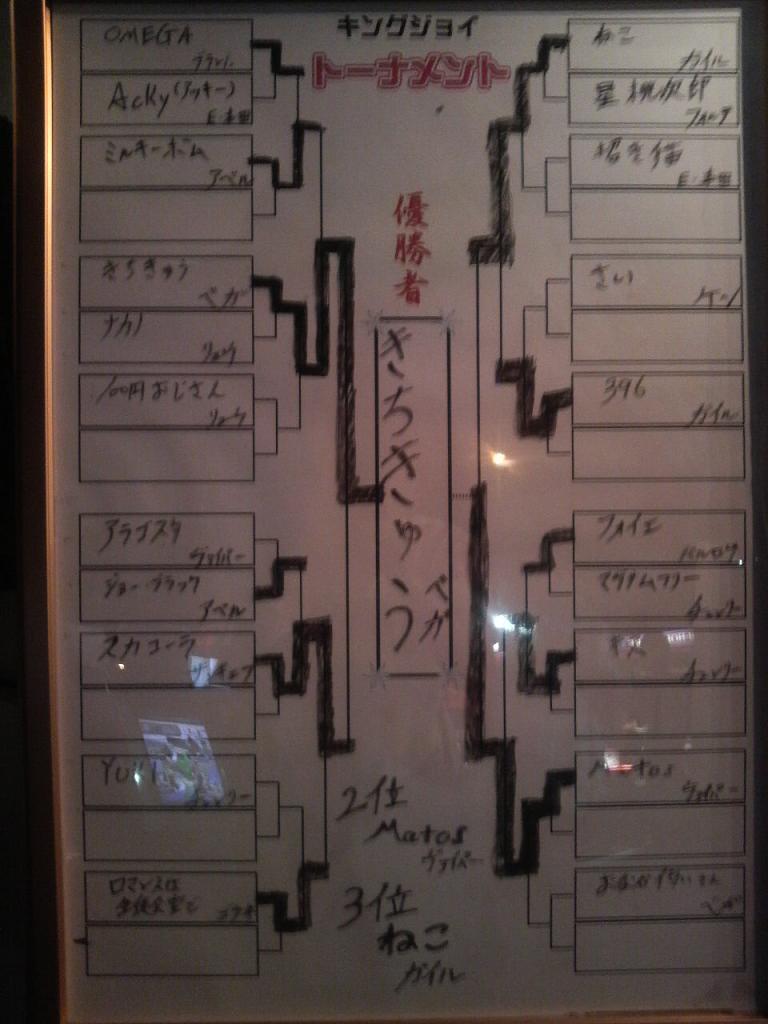 キングジョイ
トーナメント
OMEGA
ブランカ
Acky(アッキー)
E・本田
ミルキーボム
アベル
きちきゅう
ベガ
ナカノ
リュウ
100円おじさん
リュウ
アラゴスタ
ヴァイパー
ジョー・ブラック
アベル
スカコーラ
YUKI
ロマンスは
優勝者
きちきゅう
ベガ
2位
Matos
ヴァイパー
3位
ねこ
ガイル
ねこ
ガイル
星桃次郎
招き猫
E・本田
さい
ケン
396
ガイル
フォイエ
バルログ
チュンリー
チュンリー
Matos
ヴァイパー
ベガ